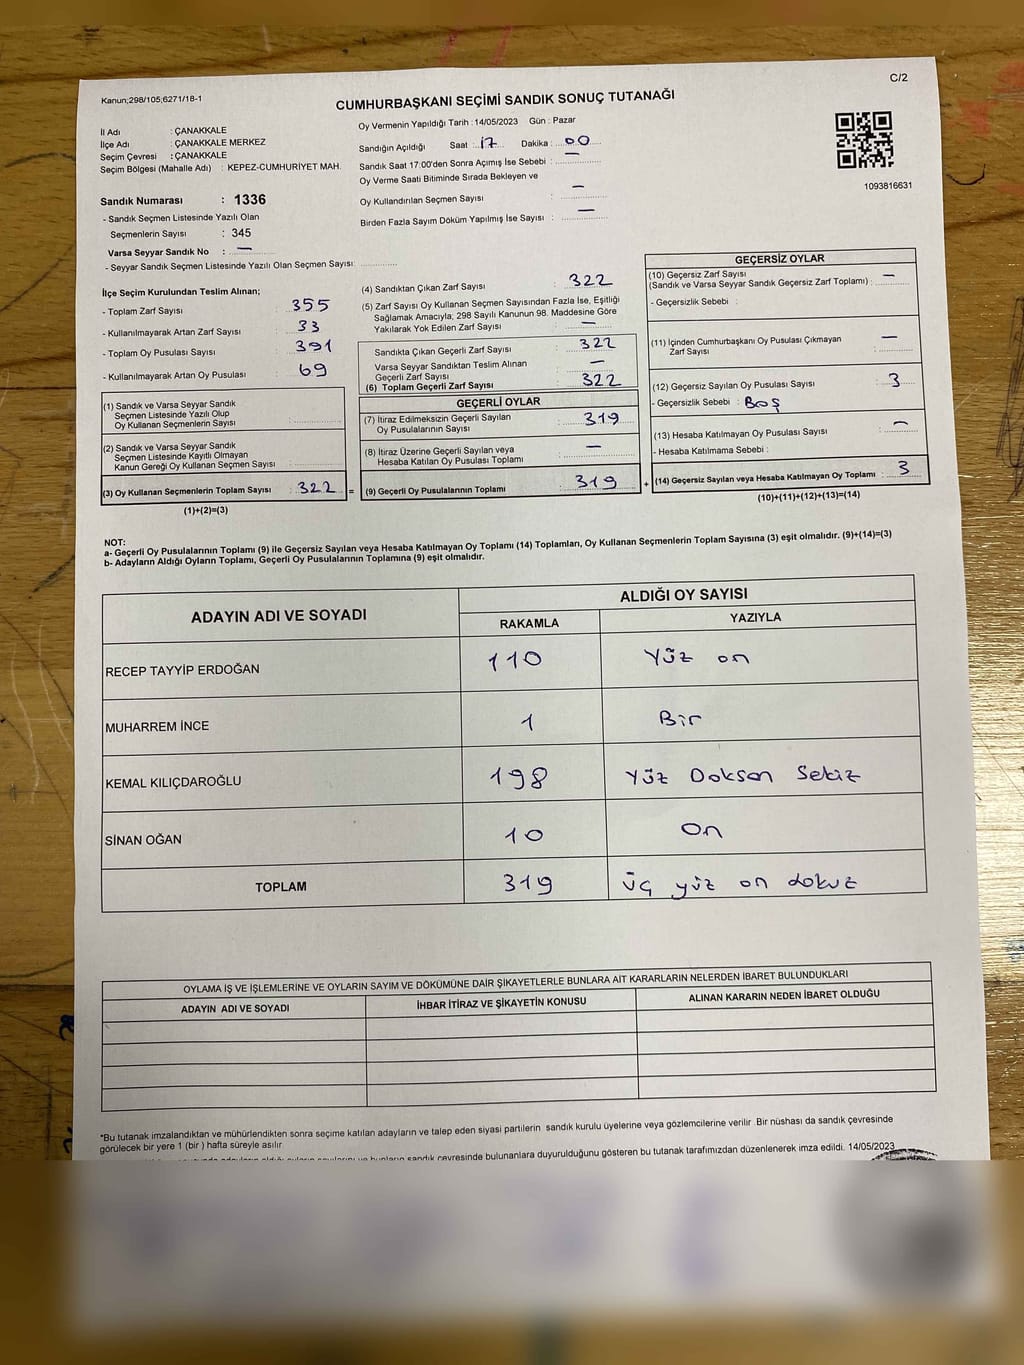 C/2
Kanun;298/105;6271/18-1
CUMHURBAŞKANI SEÇİMİ SANDIK SONUÇ TUTANAĞI
İl Adı : ÇANAKKALE
İlçe Adı : ÇANAKKALE MERKEZ
Seçim Çevresi : ÇANAKKALE
Seçim Bölgesi (Mahalle Adı) : KEPEZ-CUMHURİYET MAH.
Sandık Numarası : 1336
- Sandık Seçmen Listesinde Yazılı Olan
Seçmenlerin Sayısı : 345
Varsa Seyyar Sandık No : —
- Seyyar Sandık Seçmen Listesinde Yazılı Olan Seçmen Sayısı:
Oy Vermenin Yapıldığı Tarih : 14/05/2023 Gün : Pazar
Sandığın Açıldığı Saat : 17 Dakika : 00
Sandık Saat 17:00'den Sonra Açımış İse Sebebi : —
Oy Verme Saati Bitiminde Sırada Bekleyen ve
Oy Kullandırılan Seçmen Sayısı : —
Birden Fazla Sayım Döküm Yapılmış İse Sayısı : —
1093816631
İlçe Seçim Kurulundan Teslim Alınan;
- Toplam Zarf Sayısı : 355
- Kullanılmayarak Artan Zarf Sayısı : 33
- Toplam Oy Pusulası Sayısı : 391
- Kullanılmayarak Artan Oy Pusulası : 69
(1) Sandık ve Varsa Seyyar Sandık
Seçmen Listesinde Yazılı Olup
Oy Kullanan Seçmenlerin Sayısı :
(2) Sandık ve Varsa Seyyar Sandık
Seçmen Listesinde Kayıtlı Olmayan
Kanun Gereği Oy Kullanan Seçmen Sayısı :
(3) Oy Kullanan Seçmenlerin Toplam Sayısı : 322 =
(1)+(2)=(3)
(4) Sandıktan Çıkan Zarf Sayısı : 322
(5) Zarf Sayısı Oy Kullanan Seçmen Sayısından Fazla İse, Eşitliği
Sağlamak Amacıyla; 298 Sayılı Kanunun 98. Maddesine Göre
Yakılarak Yok Edilen Zarf Sayısı : —
Sandıkta Çıkan Geçerli Zarf Sayısı : 322
Varsa Seyyar Sandıktan Teslim Alınan
Geçerli Zarf Sayısı : —
(6) Toplam Geçerli Zarf Sayısı : 322
GEÇERLİ OYLAR
(7) İtiraz Edilmeksizin Geçerli Sayılan
Oy Pusulalarının Sayısı : 319
(8) İtiraz Üzerine Geçerli Sayılan veya
Hesaba Katılan Oy Pusulası Toplamı : —
(9) Geçerli Oy Pusulalarının Toplamı : 319 +
GEÇERSİZ OYLAR
(10) Geçersiz Zarf Sayısı
(Sandık ve Varsa Seyyar Sandık Geçersiz Zarf Toplamı) : —
- Geçersizlik Sebebi :
(11) İçinden Cumhurbaşkanı Oy Pusulası Çıkmayan
Zarf Sayısı : —
(12) Geçersiz Sayılan Oy Pusulası Sayısı : 3
- Geçersizlik Sebebi : Boş
(13) Hesaba Katılmayan Oy Pusulası Sayısı : —
- Hesaba Katılmama Sebebi :
(14) Geçersiz Sayılan veya Hesaba Katılmayan Oy Toplamı : 3
(10)+(11)+(12)+(13)=(14)
NOT:
a- Geçerli Oy Pusulalarının Toplamı (9) ile Geçersiz Sayılan veya Hesaba Katılmayan Oy Toplamı (14) Toplamları, Oy Kullanan Seçmenlerin Toplam Sayısına (3) eşit olmalıdır. (9)+(14)=(3)
b- Adayların Aldığı Oyların Toplamı, Geçerli Oy Pusulalarının Toplamına (9) eşit olmalıdır.
ADAYIN ADI VE SOYADI ALDIĞI OY SAYISI
RAKAMLA YAZIYLA
RECEP TAYYİP ERDOĞAN 110 Yüz on
MUHARREM İNCE 1 Bir
KEMAL KILIÇDAROĞLU 198 Yüz Doksan Sekiz
SİNAN OĞAN 10 On
TOPLAM 319 üç yüz on dokuz
OYLAMA İŞ VE İŞLEMLERİNE VE OYLARIN SAYIM VE DÖKÜMÜNE DAİR ŞİKAYETLERLE BUNLARA AİT KARARLARIN NELERDEN İBARET BULUNDUKLARI
ADAYIN ADI VE SOYADI İHBAR İTİRAZ VE ŞİKAYETİN KONUSU ALINAN KARARIN NEDEN İBARET OLDUĞU
*Bu tutanak imzalandıktan ve mühürlendikten sonra seçime katılan adayların ve talep eden siyasi partilerin sandık kurulu üyelerine veya gözlemcilerine verilir. Bir nüshası da sandık çevresinde
görülecek bir yere 1 (bir ) hafta süreyle asılır
sandık çevresinde bulunanlara duyurulduğunu gösteren bu tutanak tarafımızdan düzenlenerek imza edildi. 14/05/2023